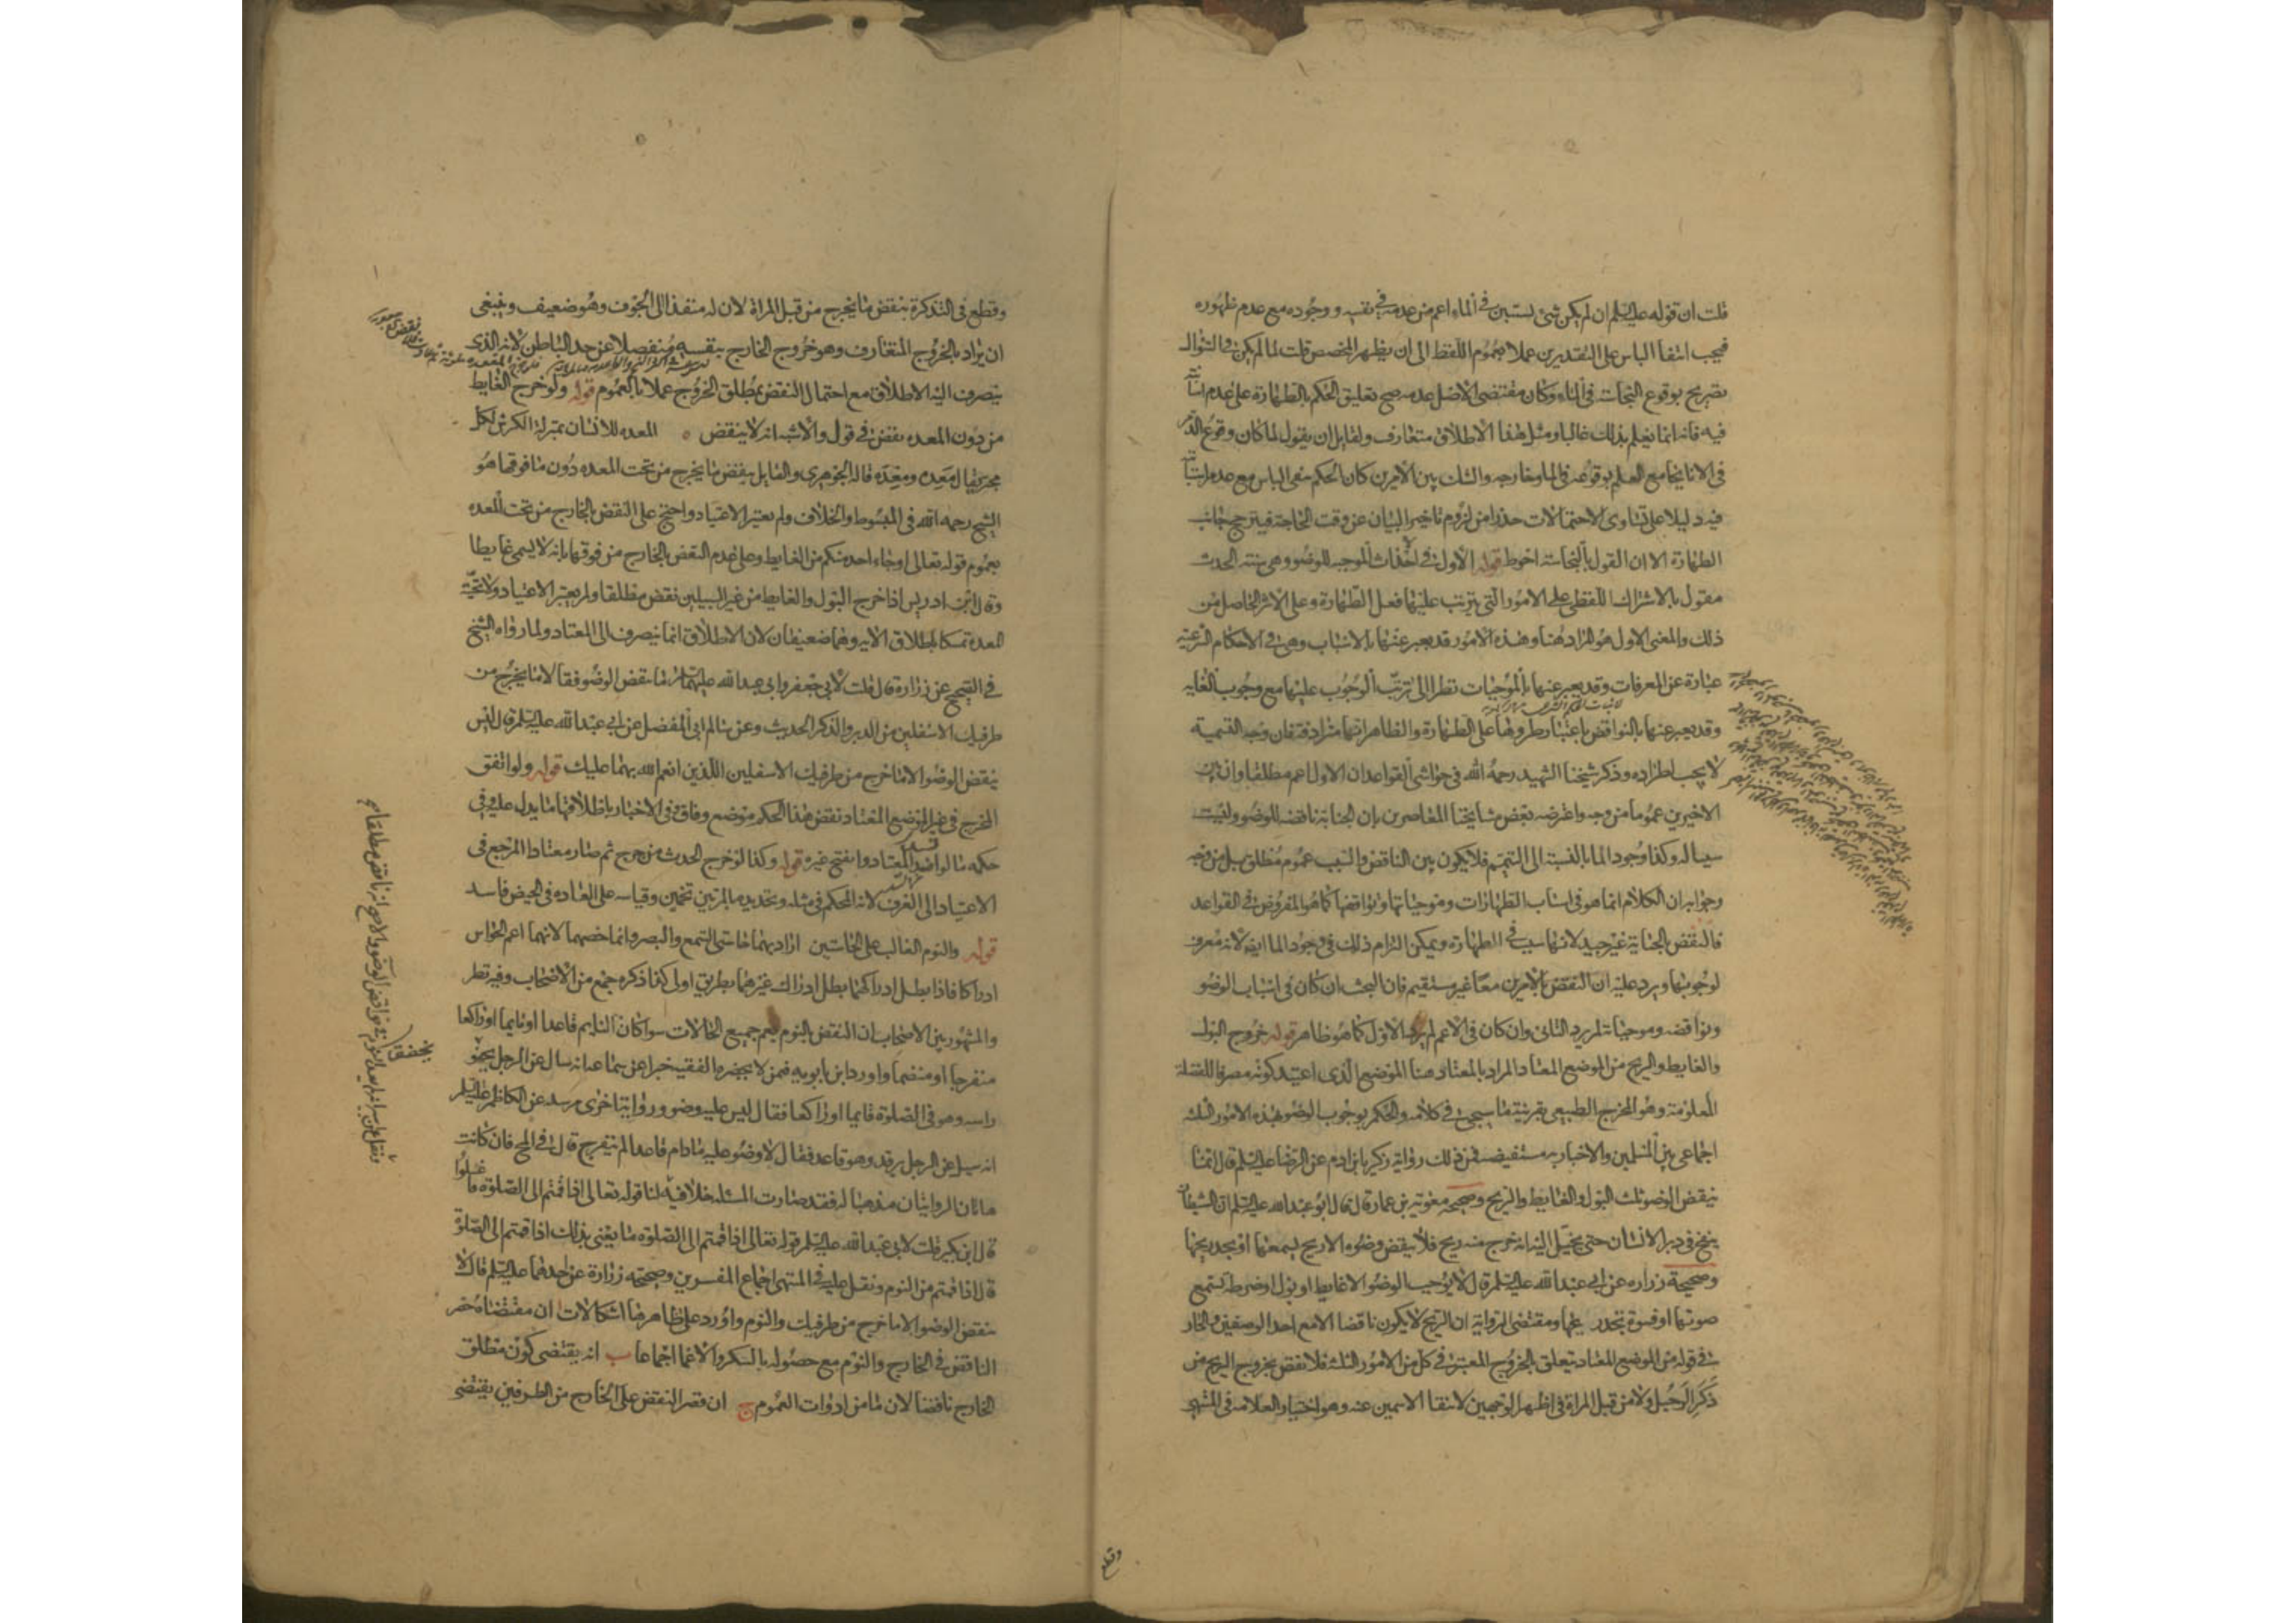 قلت ان قوله عليه السلم ان لم يكن شئ يستبين في الماء اعم من عدمه في نفسه ووجوده مع عدم ظهوره
فيجب انتفا الباس على التقديرين عملا بعموم اللفظ الى ان يظهر المخصص قلت لما لم يكن في السؤال
تصريح بوقوع النجاسة في الماء وكان مقتضى الاصل عدمه صح تعليق الحكم بالطهارة على عدم
فيه فانه انما يعلم بذلك غالبا ومثل هذا الاطلاق متعارف ولقايل ان يقول لما كان وقوع الدم
في الاناء مع العلم بوقوعه في الماء وخارجه والشك بين الامرين كان الحكم بنفي الباس مع عدم
فيه دليلا على تساوى الاحتمالات حذرا من لزوم تاخير البيان عن وقت الحاجة فيترجح جانب
الطهارة الا ان القول بالنجاسة احوط قوله الاول في الاحداث الموجبه للوضوء وهي ستة الحدث
مقول بالاشتراك اللفظي على الامور التي يترتب عليها فعل الطهارة وعلى الاثر الحاصل من
ذلك والمعنى الاول هو المراد هنا وهذه الامور قد يعبر عنها بالاسباب وهي في الاحكام الشرعية
عبارة عن المعرفات وقد يعبر عنها بالموجبات نظرا الى ترتب الوجوب عليها مع وجوب الغايه
وقد يعبر عنها بالنواقض باعتبار طروها على الطهارة والظاهر انها مترادفة فان وجه التسمية
لا يجب اطراده وذكر شيخنا الشهيد رحمه الله في حواشي القواعد ان الاول اعم مطلقا وان بين
الاخيرين عموما من وجه واعترضه بعض مشايخنا المعاصرين بان الجنابة ناقضة للوضوء وليست
سببا له وكذا وجود الماء بالنسبة الى التيمم فلا يكون بين الناقض والسبب عموم مطلق بل من وجه
وجوابه ان الكلام انما هو في اسباب الطهارات وموجباتها ونواقضها كما هو المفروض في القواعد
فالنقض بالجنابة غير جيد لانها سبب في الطهارة ويمكن التزام ذلك في وجود الماء ايضا لانه معرف
لوجوبها ويرد عليه ان النقض بالامرين معا غير مستقيم فان البحث ان كان في اسباب الوضوء
ونواقضه وموجباته لم يرد الثاني وان كان في الاعم لم يرد الاول كما هو ظاهر قوله خروج البول
والغايط والريح من الموضع المعتاد المراد بالمعتاد هنا الموضع الذى اعتيد كونه مصرفا للفضلة
المعلومة وهو المخرج الطبيعي بقرينة ما سيجئ في كلامه والحكم بوجوب الوضوء بهذه الامور الثلثة
اجماعي بين المسلمين والاخبار به مستفيضه فمن ذلك رواية زكريا بن ادم عن الرضا عليه السلم قال انما
ينقض الوضوء ثلث البول والغايط والريح وصحيحة معوية بن عمار قال قال ابو عبد الله عليه السلم ان الشيطان
ينفخ في دبر الانسان حتى يخيل اليه انه خرج منه ريح فلا ينقض وضوءه الا ريح يسمعها او يجد ريحها
وصحيحة زراره عن ابي عبد الله عليه السلم قال لا يوجب الوضوء الا غايط او بول او ضرطة تسمع
صوتها او فسوة تجد ريحها ومقتضى الرواية ان الريح لا يكون ناقضا الا مع احد الوصفين والجار
في قوله من الموضع المعتاد يتعلق بالخروج المعتبر في كل من الامور الثلثة فلا نقض بخروج الريح من
ذكر الرجل ولا من قبل المراة في اظهر الوجهين لانتفا الاسمين عنه وهو اختيار العلامه في المنتهى
وقطع
وقطع في التذكرة بنقض ما يخرج من قبل المراة لان له منفذا الى الجوف وهو ضعيف وينبغي
ان يراد بالخروج المتعارف وهو خروج الخارج بنفسه منفصلا عن حد الباطن لانه الذى
ينصرف اليه الاطلاق مع احتمال النقض بمطلق الخروج عملا بالعموم قوله ولو خرج الغايط
من دون المعده نقض في قول والاشبه انه لا ينقض المعده للانسان بمنزلة الكرش لكل
مجتر يقال معدة ومعدة قاله الجوهرى والقايل بنقض ما يخرج من تحت المعده دون ما فوقها هو
الشيخ رحمه الله في المبسوط والخلاف ولم يعتبر الاعتياد واحتج على النقض بالخارج من تحت المعده
بعموم قوله تعالى اوجاء احد منكم من الغايط وعلى عدم النقض بالخارج من فوقها بانه لا يسمى غايطا
وقال ابن ادريس اذا خرج البول والغايط من غير السبيلين نقض مطلقا ولم يعتبر الاعتياد ولا تحتية
المعدة تمسكا باطلاق الايه وهما ضعيفان لان الاطلاق انما ينصرف الى المعتاد ولما رواه الشيخ
في الصحيح عن زرارة قال قلت لابي جعفر وابي عبد الله عليهما السلم ما ينقض الوضوء فقالا ما يخرج من
طرفيك الاسفلين من الدبر والذكر الحديث وعن سالم ابي الفضل عن ابي عبد الله عليه السلم قال ليس
ينقض الوضوء الا ما خرج من طرفيك الاسفلين اللذين انعم الله بهما عليك قوله ولو اتفق
المخرج في غير الموضع المعتاد نقض هذا الحكم موضع وفاق وفي الاخبار باطلاقها ما يدل عليه وفي
حكمه ما لو انسد المعتاد وانفتح غيره قوله وكذا لو خرج الحدث من جرح ثم صار معتادا المرجع في
الاعتياد الى العرف لانه المحكم في مثله وتحديده بالمرتين تخمين وقياسه على العاده في الحيض فاسد
قوله والنوم الغالب على الحاستين اراد بهما حاستى السمع والبصر وانما خصهما لانهما اعم الحواس
ادراكا فاذا بطل ادراكهما بطل ادراك غيرهما بطريق اولى كذا ذكره جمع من الاصحاب وفيه نظر
والمشهور بين الاصحاب ان النقض بالنوم يعم جميع الحالات سواء كان النايم قاعدا او قايما او راكعا
منفرجا او منضما واورد ابن بابويه فى من لا يحضره الفقيه خبرا عن سماعه انه سال عن الرجل يخفق
راسه وهو في الصلوة قايما او راكعا فقال ليس عليه وضوء ورواية اخرى مرسلة عن الكاظم عليه السلم
انه سيل عن الرجل يرقد وهو قاعد فقال لا وضوء عليه ما دام قاعدا لم ينفرج قال في فان كانت
هاتان الروايتان مذهبا له فقد صارت المسئله خلافية لنا قوله تعالى اذا قمتم الى الصلوة فاغسلوا
قال ابن بكير قلت لابي عبد الله عليه السلم قوله تعالى اذا قمتم الى الصلوة ما يعنى بذلك اذا قمتم الى الصلوة
قال اذا قمتم من النوم ونقل عليه في المنتهى اجماع المفسرين وصحيحة زرارة عن احدهما عليه السلم قال لا
ينقض الوضوء الا ما خرج من طرفيك والنوم واورد على ظاهرها اشكالات ا ان مقتضاه حصر
الناقض في الخارج والنوم مع حصوله بالسكر والاغما اجماعا ب انه يقتضى كون مطلق
الخارج ناقضا لان ما من ادوات العموم ج ان قصر النقض على الخارج من الطرفين يقتضى
يخفق